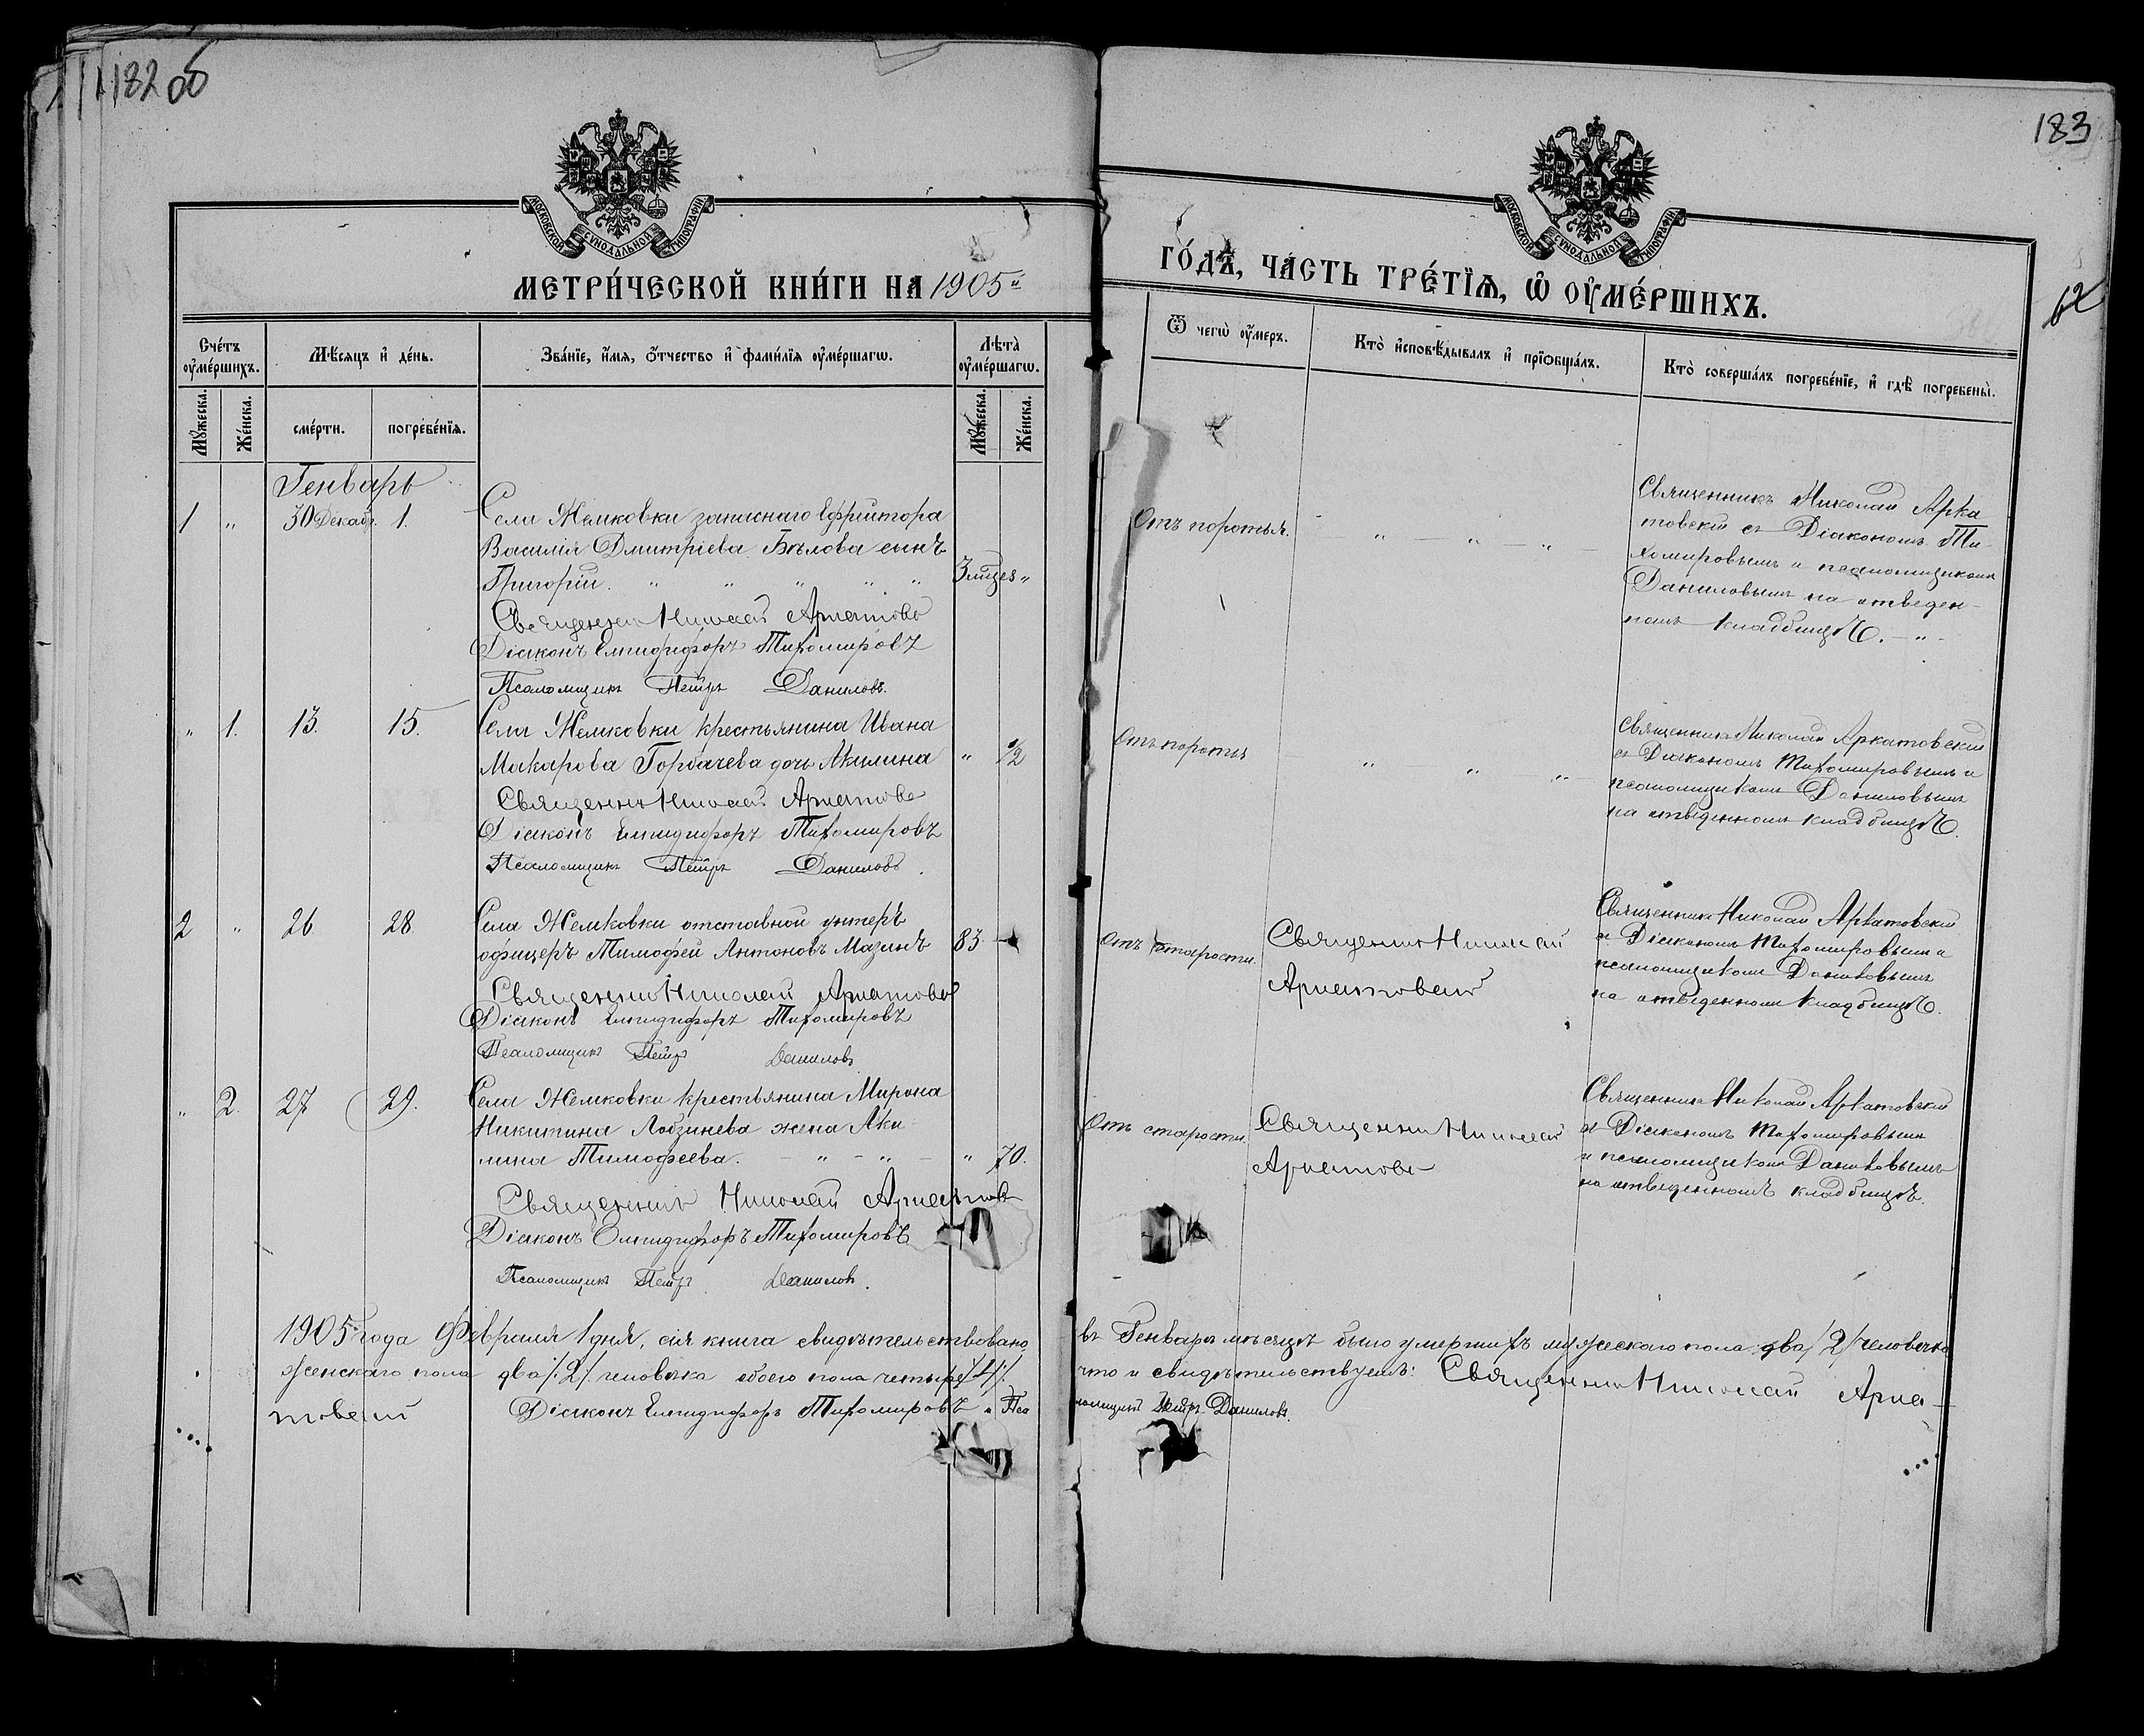 182 об
183
62
МОСКОВСКОЙ СѴНОДАЛЬНОЙ ТИПОГРАФІИ
МОСКОВСКОЙ СѴНОДАЛЬНОЙ ТИПОГРАФІИ
МЕТРИ́ЧЕСКОЙ КНИ́ГИ НА 1905й
ГО́ДЪ, ЧА́СТЬ ТРЕ́ТІѦ, Ѡ҆ ОУ҆МЕ́РШИХЪ.
Сче́тъ оу҆ме́ршихъ.
Мѣ́сѧцъ и҆ де́нь.
Зва́нїе, и҆́мѧ, ѻ҆́тчество и҆ фами́лїѧ оу҆ме́ршагѡ.
Лѣ́та̀ оу҆ме́ршагѡ.
Ѿ чегѡ̀ оу҆́меръ.
Кто̀ и҆сповѣ́дывалъ и҆ прїѡбща́лъ.
Кто̀ соверша́лъ погребе́нїе, и҆ гдѣ̀ погребены̀.
Мꙋ́жеска.
Же́нска.
сме́рти.
погребе́нїѧ.
Мꙋ́жеска.
Же́нска.
Генварь
1 " 30 Декабр. 1.
Села Жемковки запаснаго ефрейтора
Василія Дмитріева Бѣлова сынъ
Григорій. " " " " " 3 мцев "
Священник Николай Аркатовс
Діаконъ Епидифоръ Тихомировъ
Псаломщикъ Петръ Даниловъ.
Отъ поротья.
" " "
Священникъ Николай Арка
товскій съ Діакономъ Ти
хомировымъ и псаломщикомъ
Даниловымъ на отведен-
номъ кладбищѣ. "
" 1. 13. 15.
Села Жемковки крестьянина Ивана
Макарова Горбачева дочь Акилина " 1/2
Священникъ Николай Аркатовс
Діаконъ Епидифоръ Тихомировъ
Псаломщикъ Петръ Даниловъ.
Отъ поротья
" " "
Священникъ Николай Аркатовскій
съ Діакономъ Тихомировымъ и
псаломщикомъ Даниловымъ
на отведенномъ кладбищѣ.
2 " 26 28
Села Жемковки отставной унтеръ
офицеръ Тимофей Антоновъ Мазинъ 83
Священник Николай Аркатовс
Діаконъ Епидифоръ Тихомировъ
Псаломщикъ Петръ Даниловъ
Отъ старости.
Священник Николай
Аркатовскій
Священникъ Николай Аркатовскій
съ Діакономъ Тихомировымъ и
псаломщикомъ Даниловымъ
на отведенномъ кладбищѣ.
" 2. 27 29.
Села Жемковки крестьянина Мирона
Никитина Лобзинева жена Аки
лина Тимофеева. " " " 70.
Священникъ Николай Аркатов
Діаконъ Епидифоръ Тихомировъ
Псаломщикъ Петръ Даниловъ.
Отъ старости.
Священник Николай
Аркатовс
Священникъ Николай Аркатовскій
съ Діакономъ Тихомировымъ
и псаломщикомъ Даниловымъ
на отведенномъ кладбищѣ.
1905 года Февраля 1 дня, сія книга свидѣтельствована, въ Генварѣ мѣсяцѣ было умершихъ мужескаго пола два /2/ человѣка
женскаго пола два /:2:/ человѣка обоего пола четыре /:4:/. что и свидѣтельствуемъ: Священник Николай Арка-
товскій Діаконъ Епидифоръ Тихомировъ и Псаломщикъ Петръ Даниловъ.